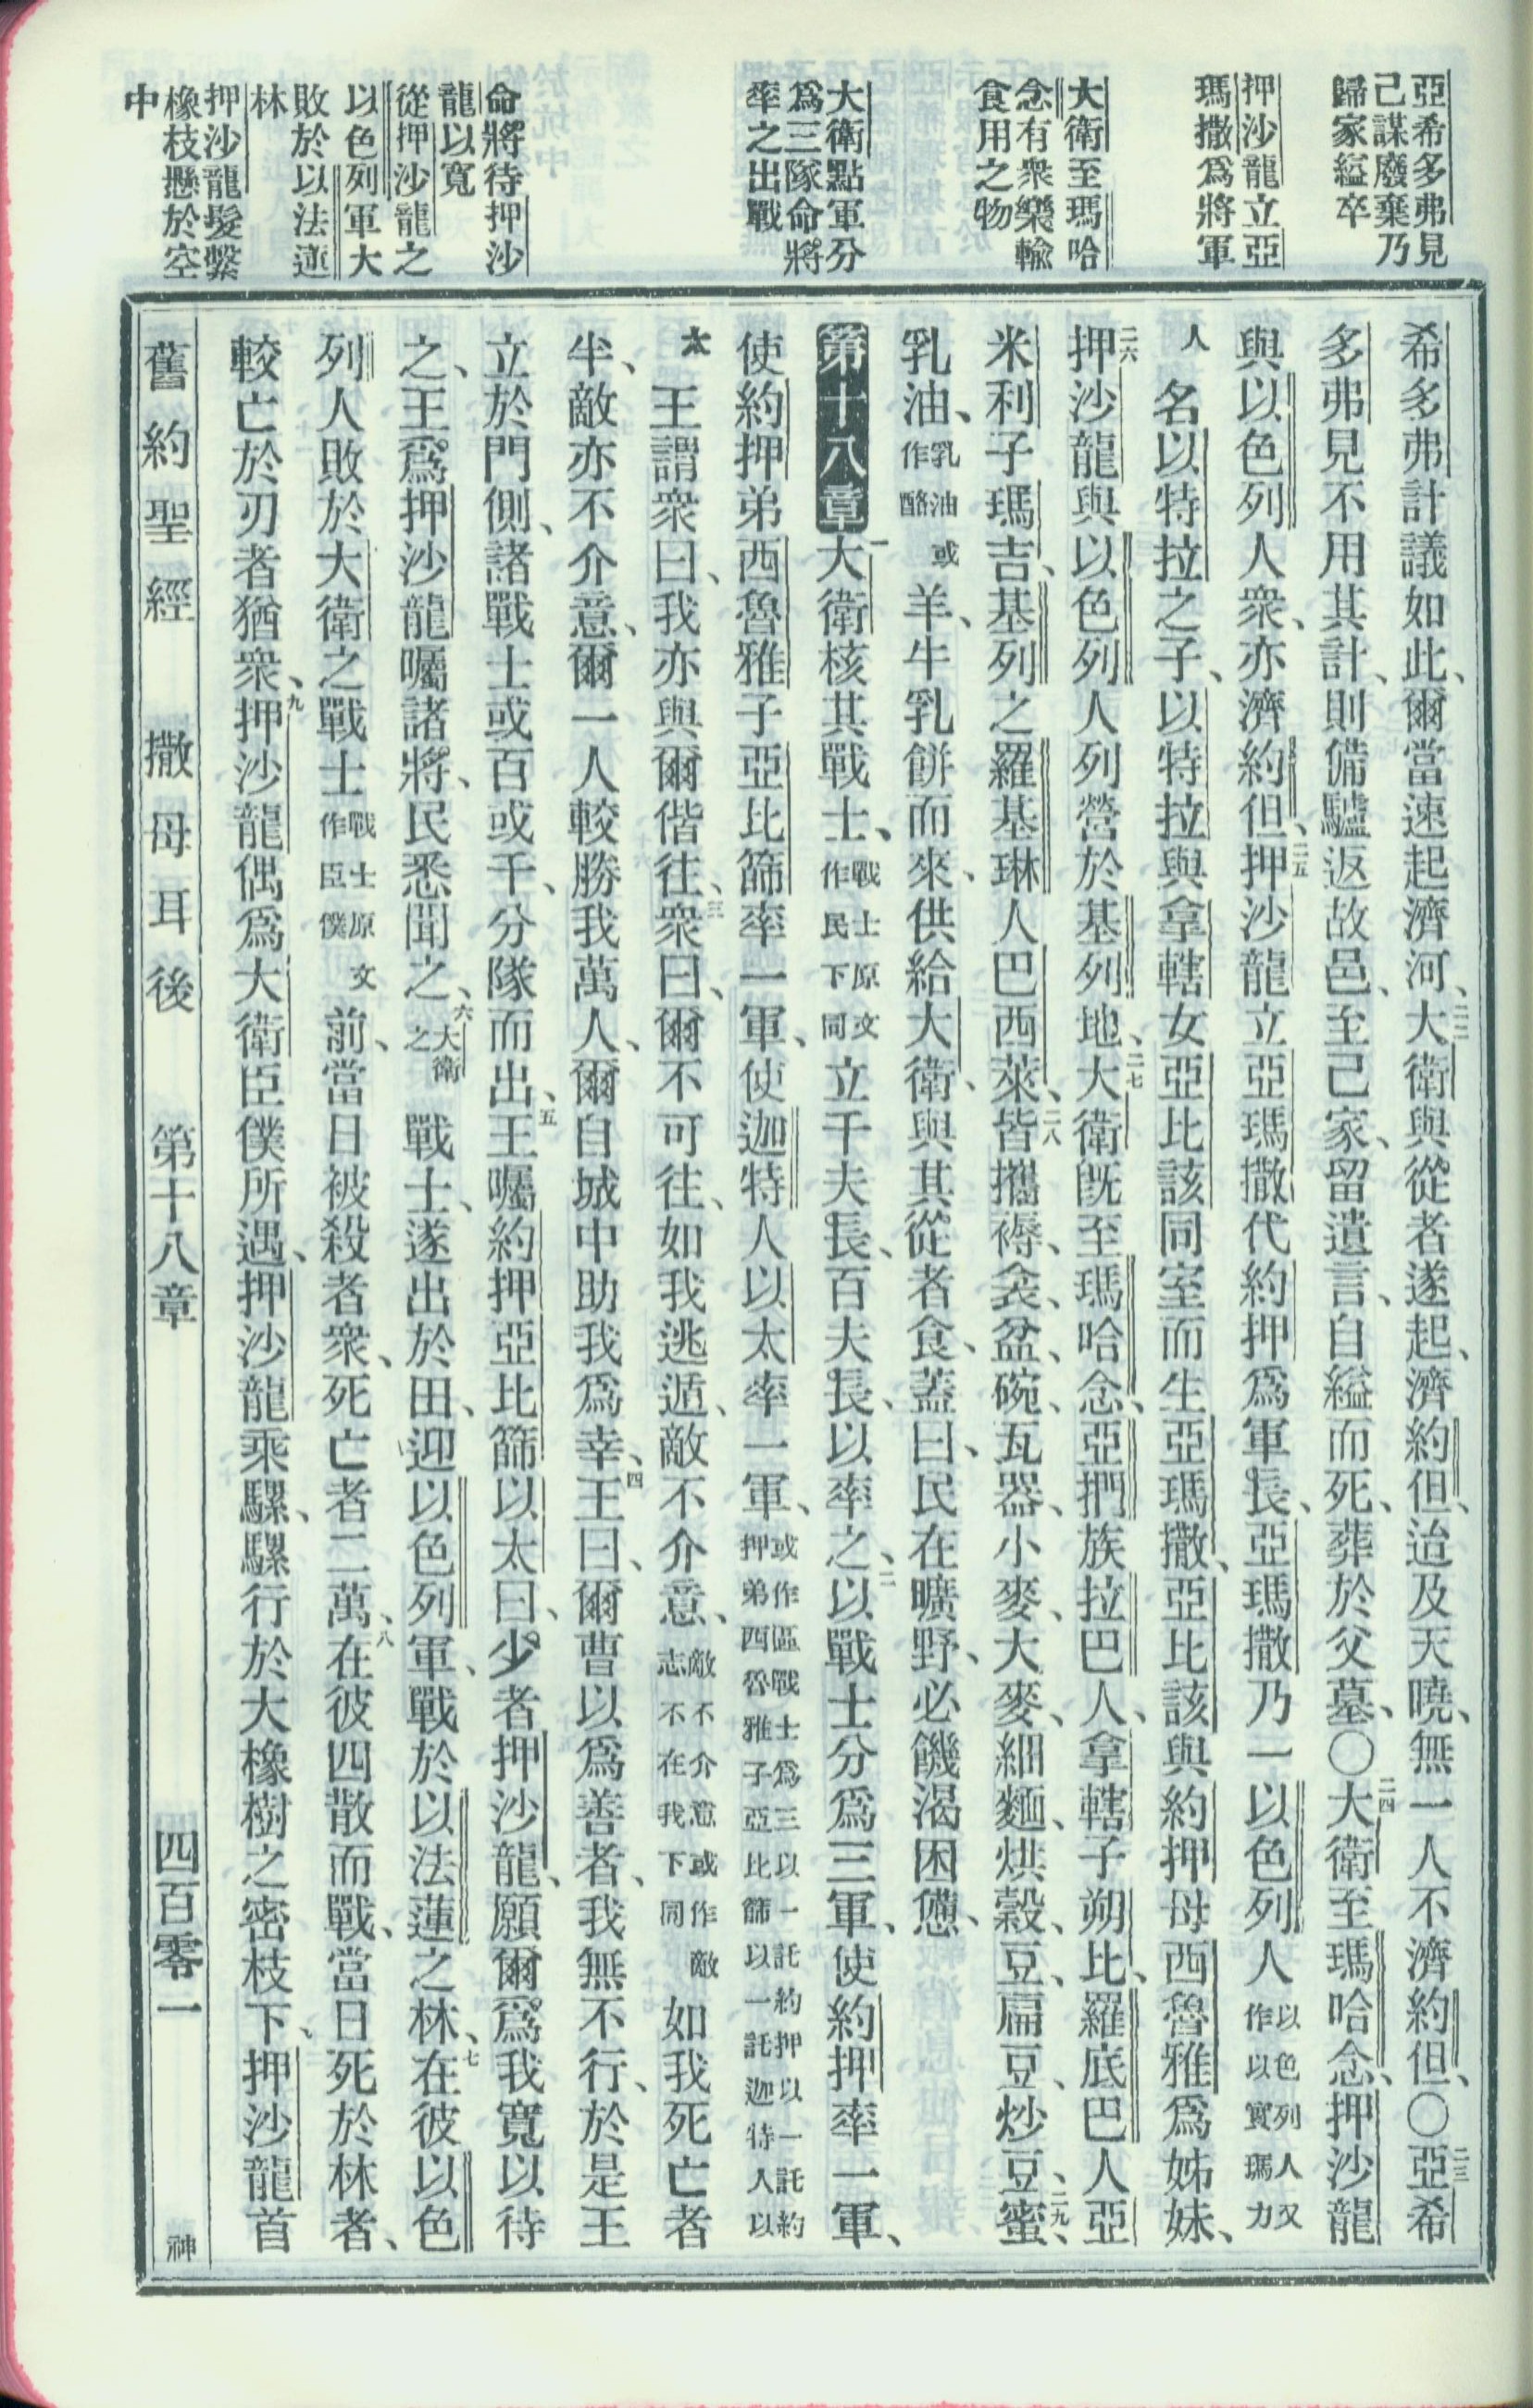 亞希多弗見
己謀廢棄乃
歸家縊卒
押沙龍立亞
瑪撒爲將軍
大衛至瑪哈
念有衆樂輸
食用之物
大衛點軍分
爲三隊命將
率之出戰
命將待押沙
龍以寬
從押沙龍之
以色列軍大
敗於以法蓮
林
押沙龍髮繫
橡枝懸於空
中
希多弗計議如此、爾當速起濟河、二二大衛與從者遂起、濟約但、迨及天曉、無一人不濟約但、〇二三亞希
多弗見不用其計、則備驢返故邑、至己家、留遺言、自縊而死、葬於父墓、〇二四大衛至瑪哈念、押沙龍
與以色列人衆、亦濟約但、二五押沙龍立亞瑪撒代約押爲軍長、亞瑪撒乃一以色列人以色列人又作以實瑪力
人名以特拉之子、以特拉與拿轄女亞比該同室而生亞瑪撒、亞比該與約押母西魯雅爲姊妹、
二六押沙龍與以色列人列營於基列地、二七大衛旣至瑪哈念、亞捫族拉巴人、拿轄子朔比、羅底巴人亞
米利子瑪吉、基列之羅基琳人巴西萊、二八皆攜褥、衾、盆、碗、瓦器、小麥、大麥、細麵、烘穀、豆、扁豆、炒豆、二九蜜、
乳油、乳油或作酪羊、牛乳餅而來、供給大衛、與其從者食、蓋曰、民在曠野、必饑渴困憊、
第十八章一大衛核其戰士、戰士原文作民下同立千夫長、百夫長、以率之、二以戰士分爲三軍、使約押率一軍、
使約押弟西魯雅子亞比篩率一軍、使迦特人以太率一軍、或作區戰士爲三以一託約押以一託約押弟西魯雅子亞比篩以一託迦特人以
太王謂衆曰、我亦與爾偕往、三衆曰、爾不可往、如我逃遁、敵不介意、敵不介意或作敵志不在我下同如我死亡者
半、敵亦不介意、爾一人較勝我萬人、爾自城中助我爲幸、四王曰、爾曹以爲善者、我無不行、於是王
立於門側、諸戰士或百或千、分隊而出、五王囑約押亞比篩以太曰、少者押沙龍、願爾爲我寬以待
之、王爲押沙龍囑諸將、民悉聞之、六大衛之戰士、遂出於田、迎以色列軍、戰於以法蓮之林、七在彼以色
列人敗於大衛之戰士戰士原文作臣僕前、當日被殺者衆、死亡者二萬、八在彼四散而戰、當日死於林者、
較亡於刃者猶衆、九押沙龍偶爲大衛臣僕所遇、押沙龍乘騾、騾行於大橡樹之密枝下、押沙龍首
舊約聖經 撒母耳後 第十八章 四百零一 神